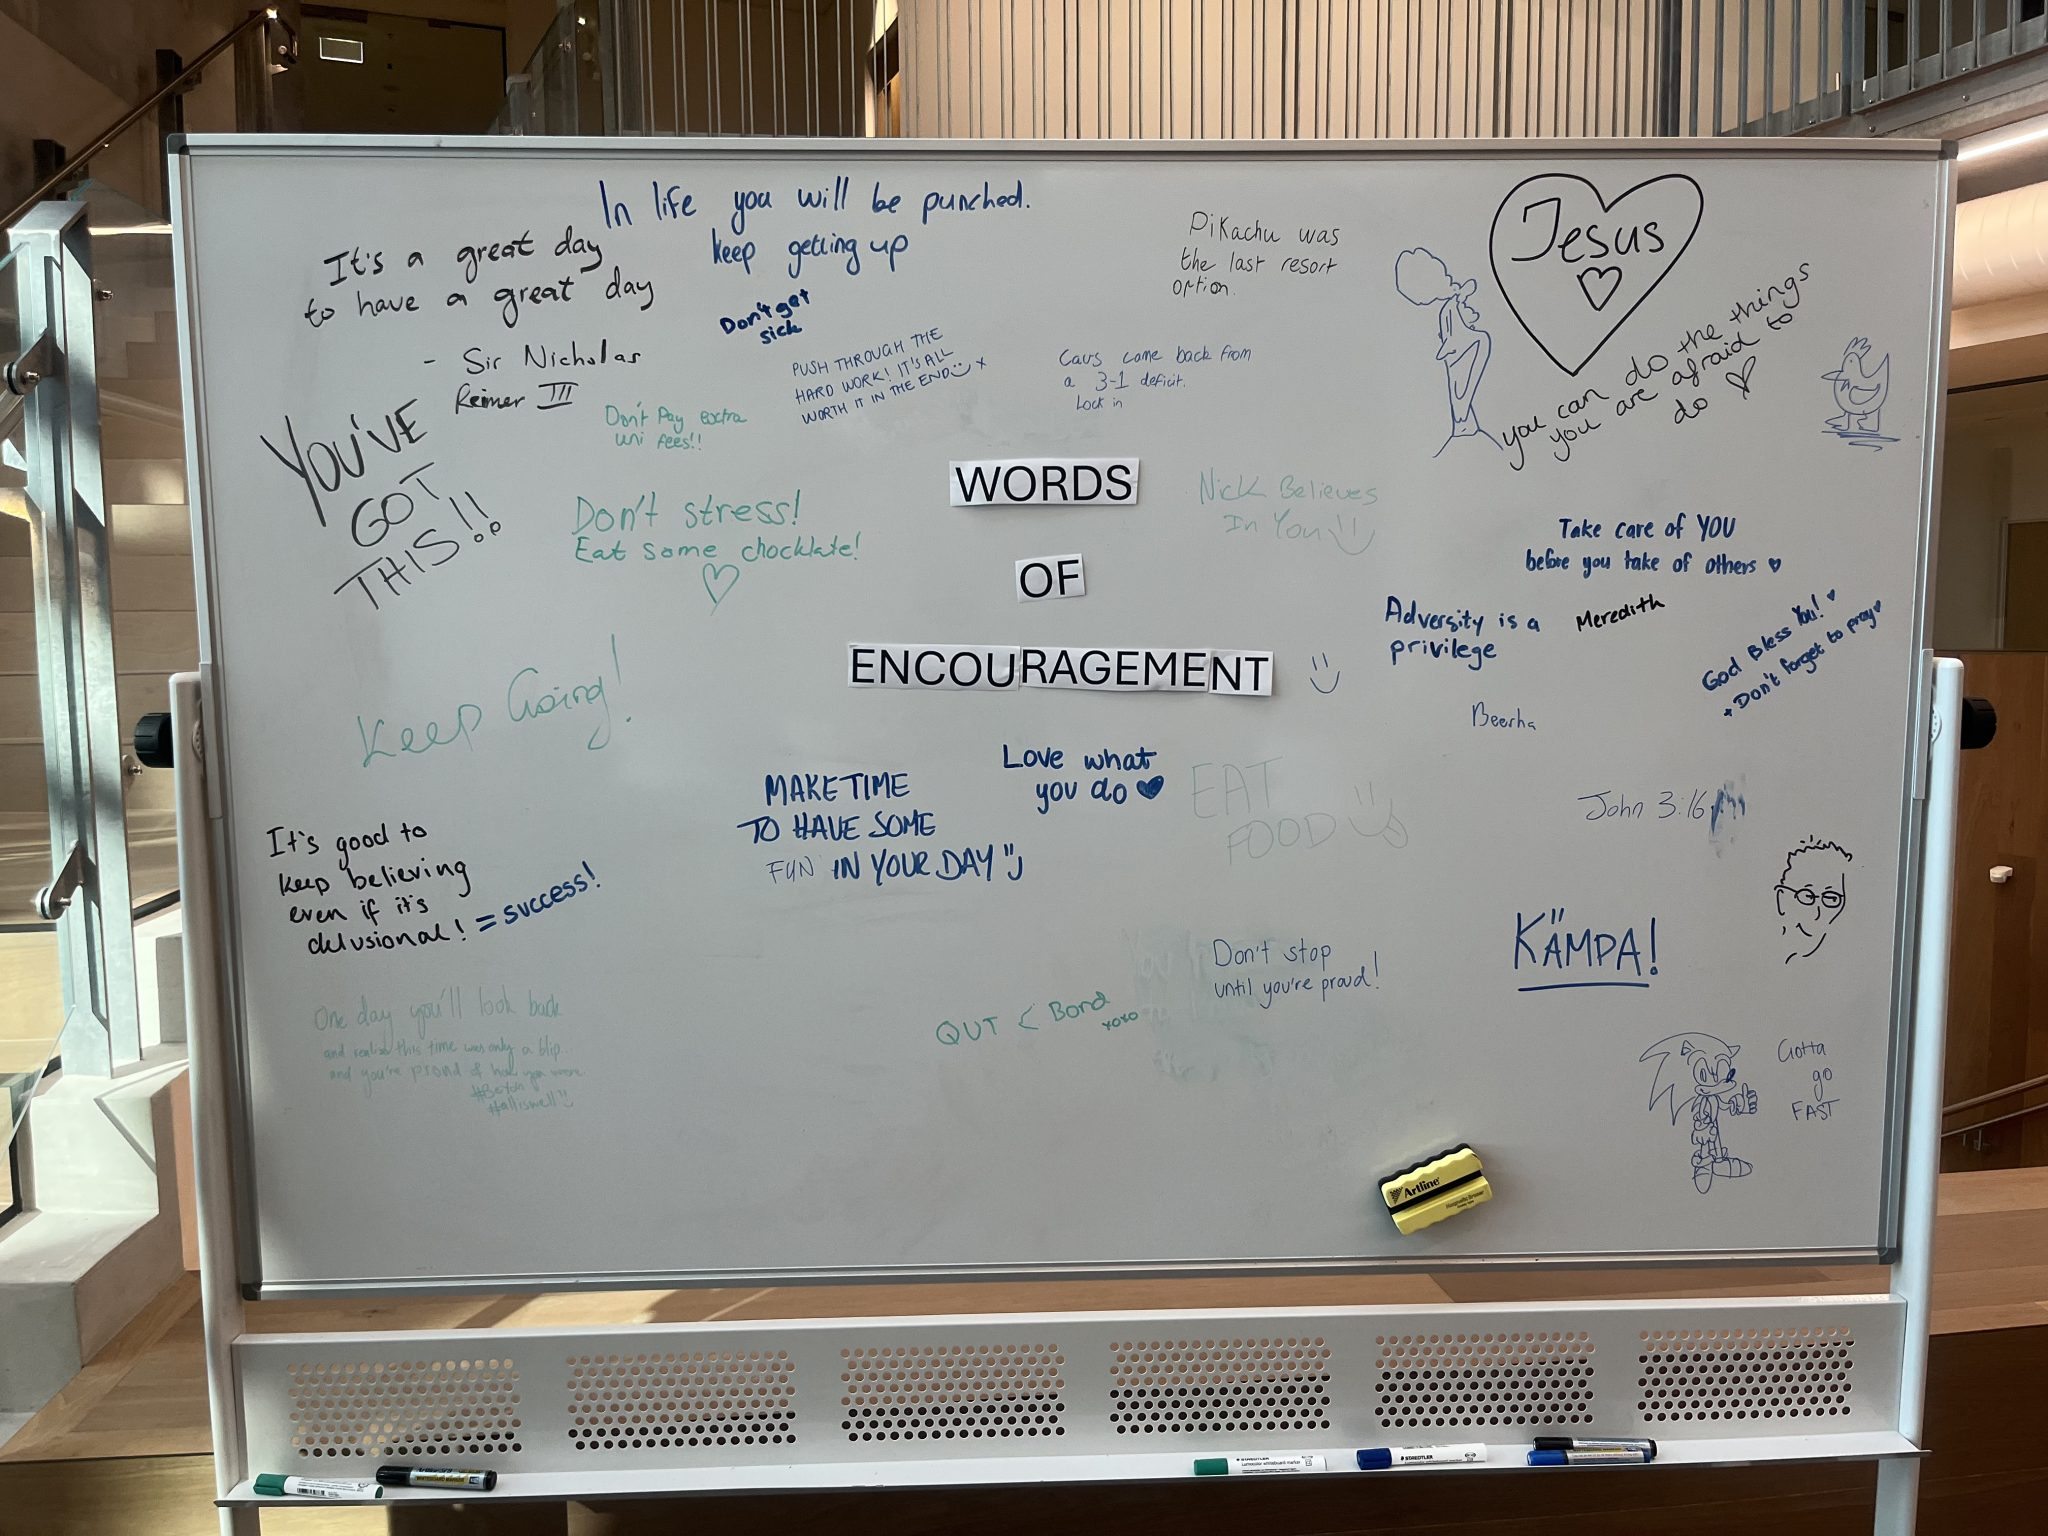 In life you will be punched.
keep getting up
It's a great day
to have a great day
- Sir Nicholas
Reimer III
Don't get
sick
PUSH THROUGH THE
HARD WORK! IT'S ALL
WORTH IT IN THE END x
Pikachu was
the last resort
option.
Cavs came back from
a 3-1 deficit.
Lock in
Jesus
you can do the things
you are afraid to
do
YOU'VE
GOT
THIS!!
Don't Pay extra
uni fees!!
Don't stress!
Eat some chocklate!
WORDS
OF
ENCOURAGEMENT
Nick Believes
In You
Take care of YOU
before you take of others
Adversity is a
privilege
Meredith
God Bless You!
Don't forget to pray
Beerha
Keep Going!
Love what
you do
MAKE TIME
TO HAVE SOME
FUN IN YOUR DAY
EAT
FOOD
John 3:16
It's good to
keep believing
even if it's
delusional! = success!
KÄMPA!
Don't stop
until you're proud!
QUT < Bond
xoxo
One day you'll look back
and realise this time was only a blip..
and you're proud of how you were.
#alliswell
Gotta
go
FAST
Artline
STAEDTLER
STAEDTLER